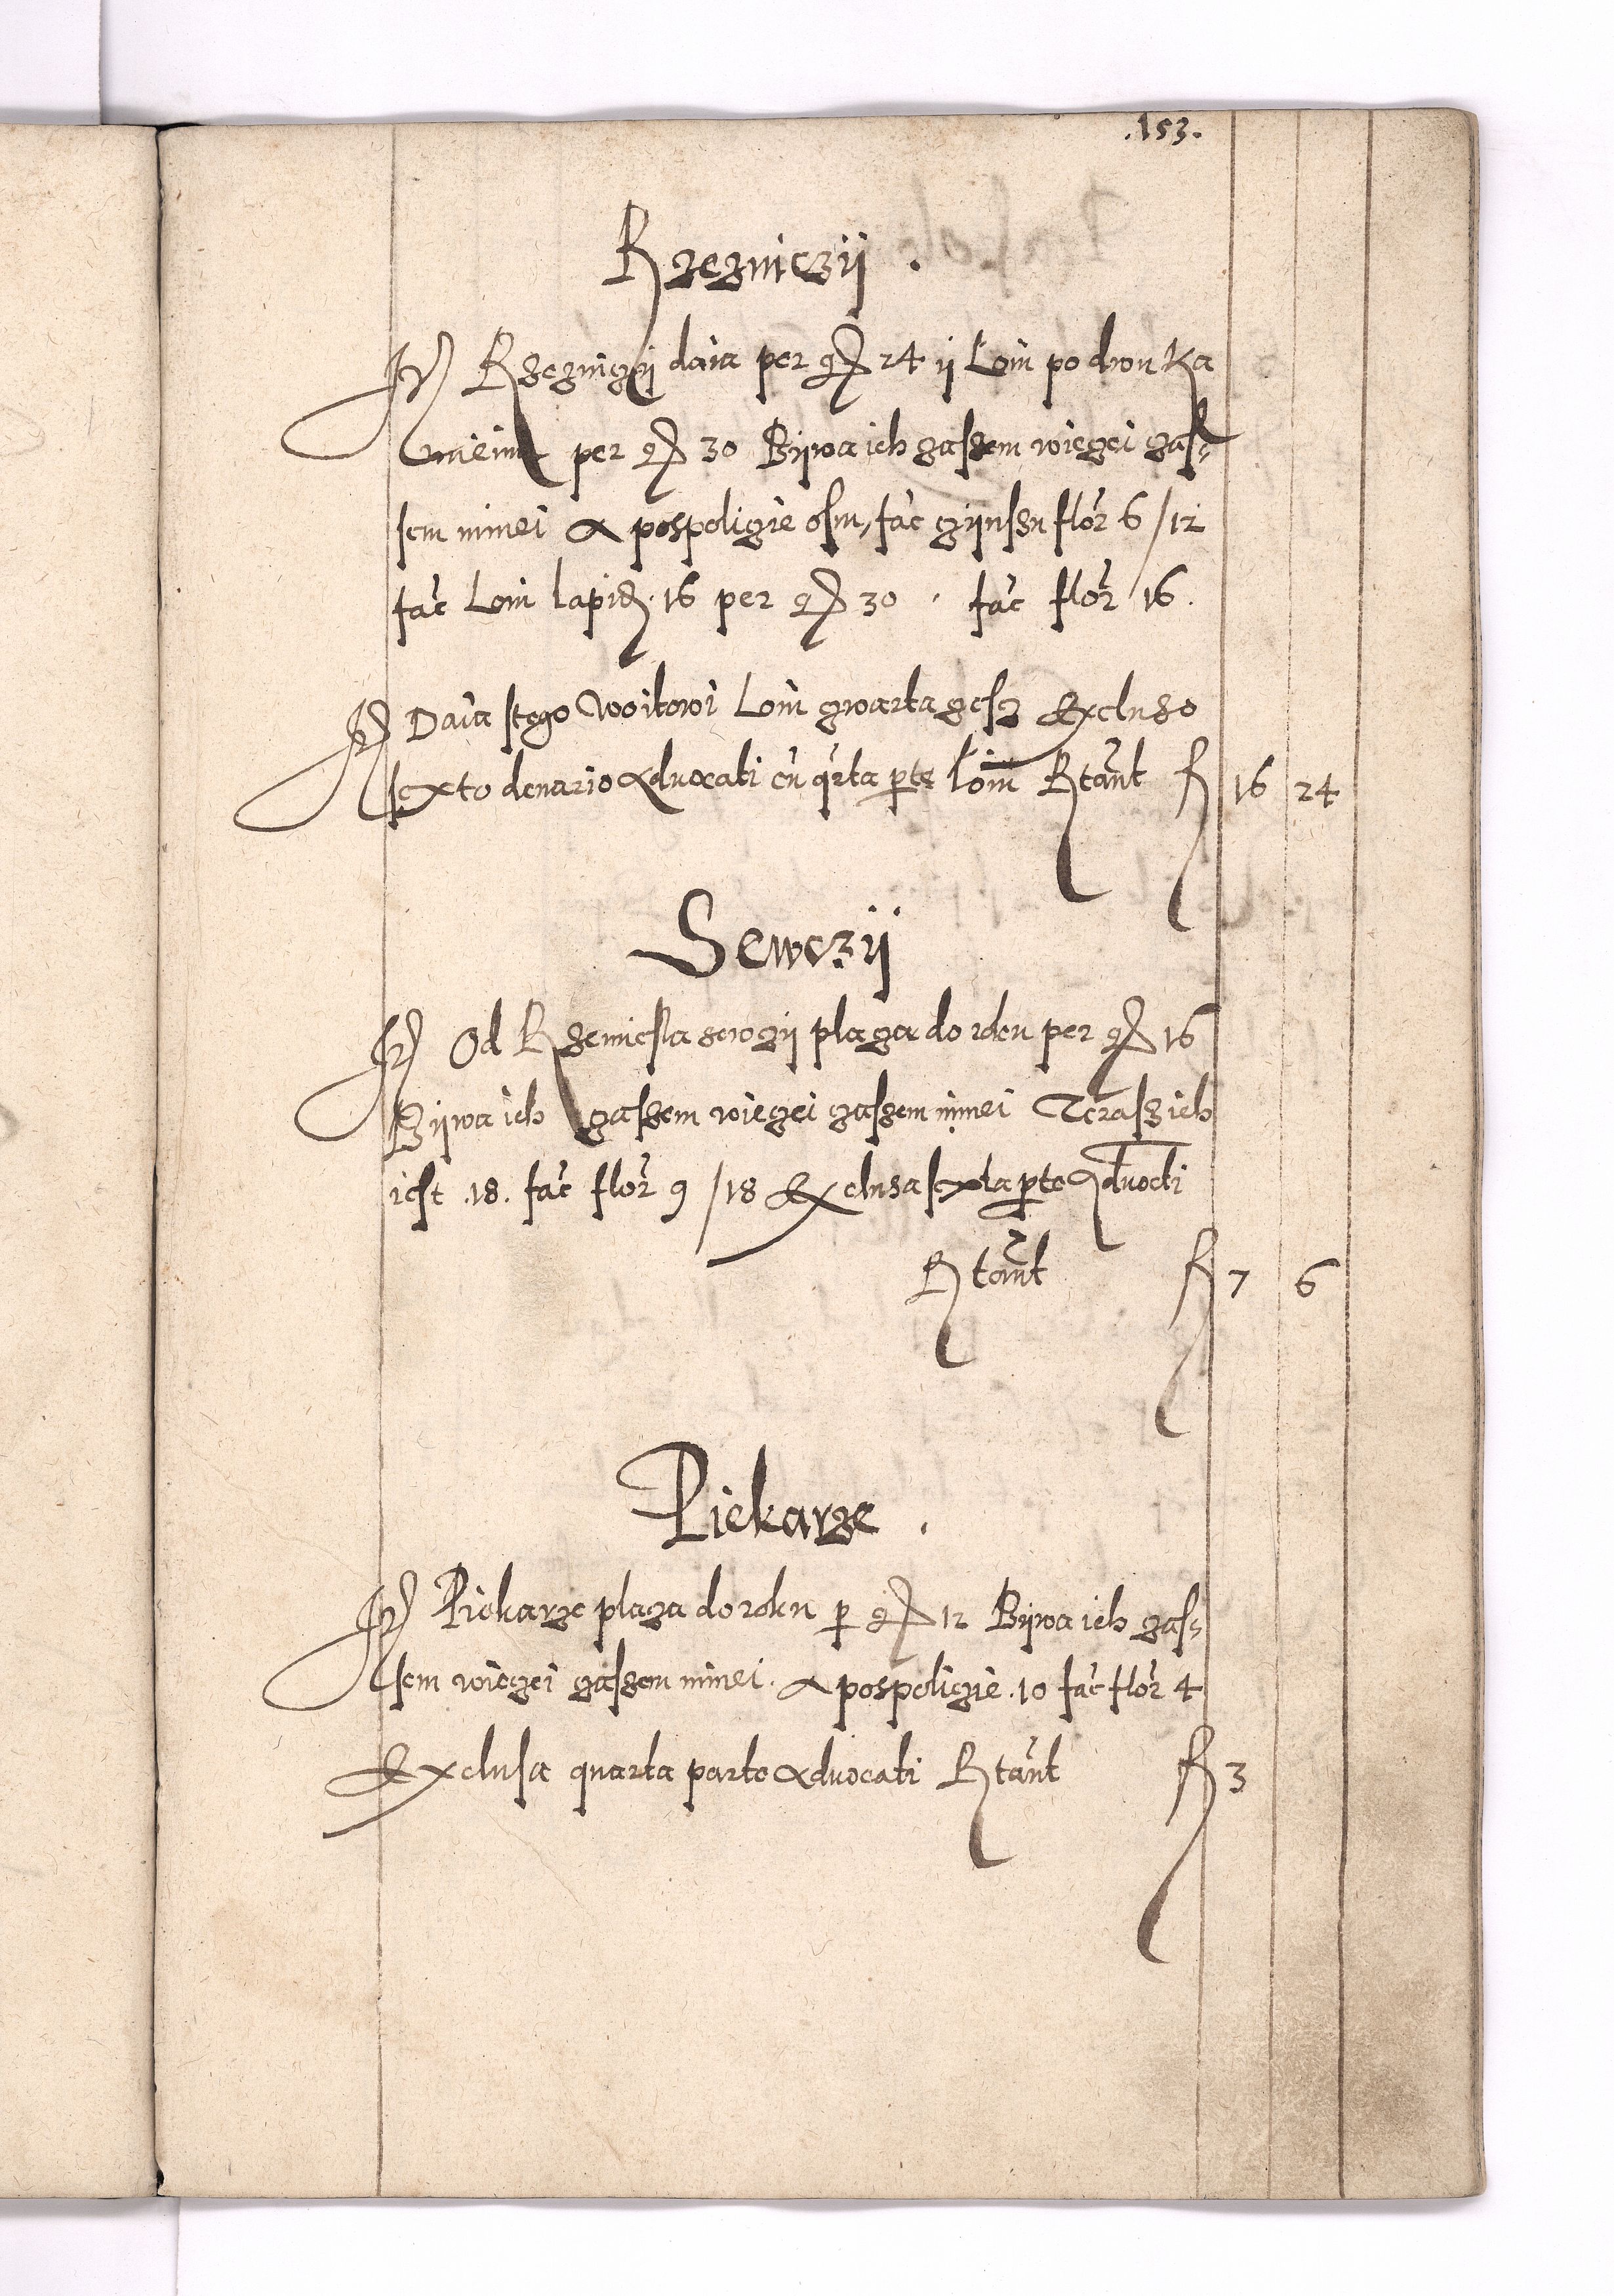 .153.
Rzezniczÿ .
Jt Rzezniczÿ daia per gr 24 ÿ Loiu po dwu ka
mieniu per gr 30 Bÿwa ich zaszem wiezei zas-
sem mniei a pospolizie osm, fac czÿnszu flor 6 /12
fac Loiu lapid. 16 per gr 30 . fac flor 16.
Jt Daia stego Woitowi Loiu czwarta czesz Excluso
sexto denario Aduocati cu qrta parte loiu Rtant fl 16 24
Sewczÿ
Jt Od Rzemiesla sewczÿ placza do roku per gr 16
Bÿwa ich zaszem wiezei zaszem mniei Terasz ich
iest .18. fac flor 9 /18 Exclusa sexta parte Aduocti
Rtant fl 7 6
Piekarze .
Jt Piekarze placza do roku per gr 12 Bÿwa ich zas-
sem wiezei zaszem mniei . a pospolizie .10 fac flor 4
Exclusa quarta parte Aduocati Rtant fl 3